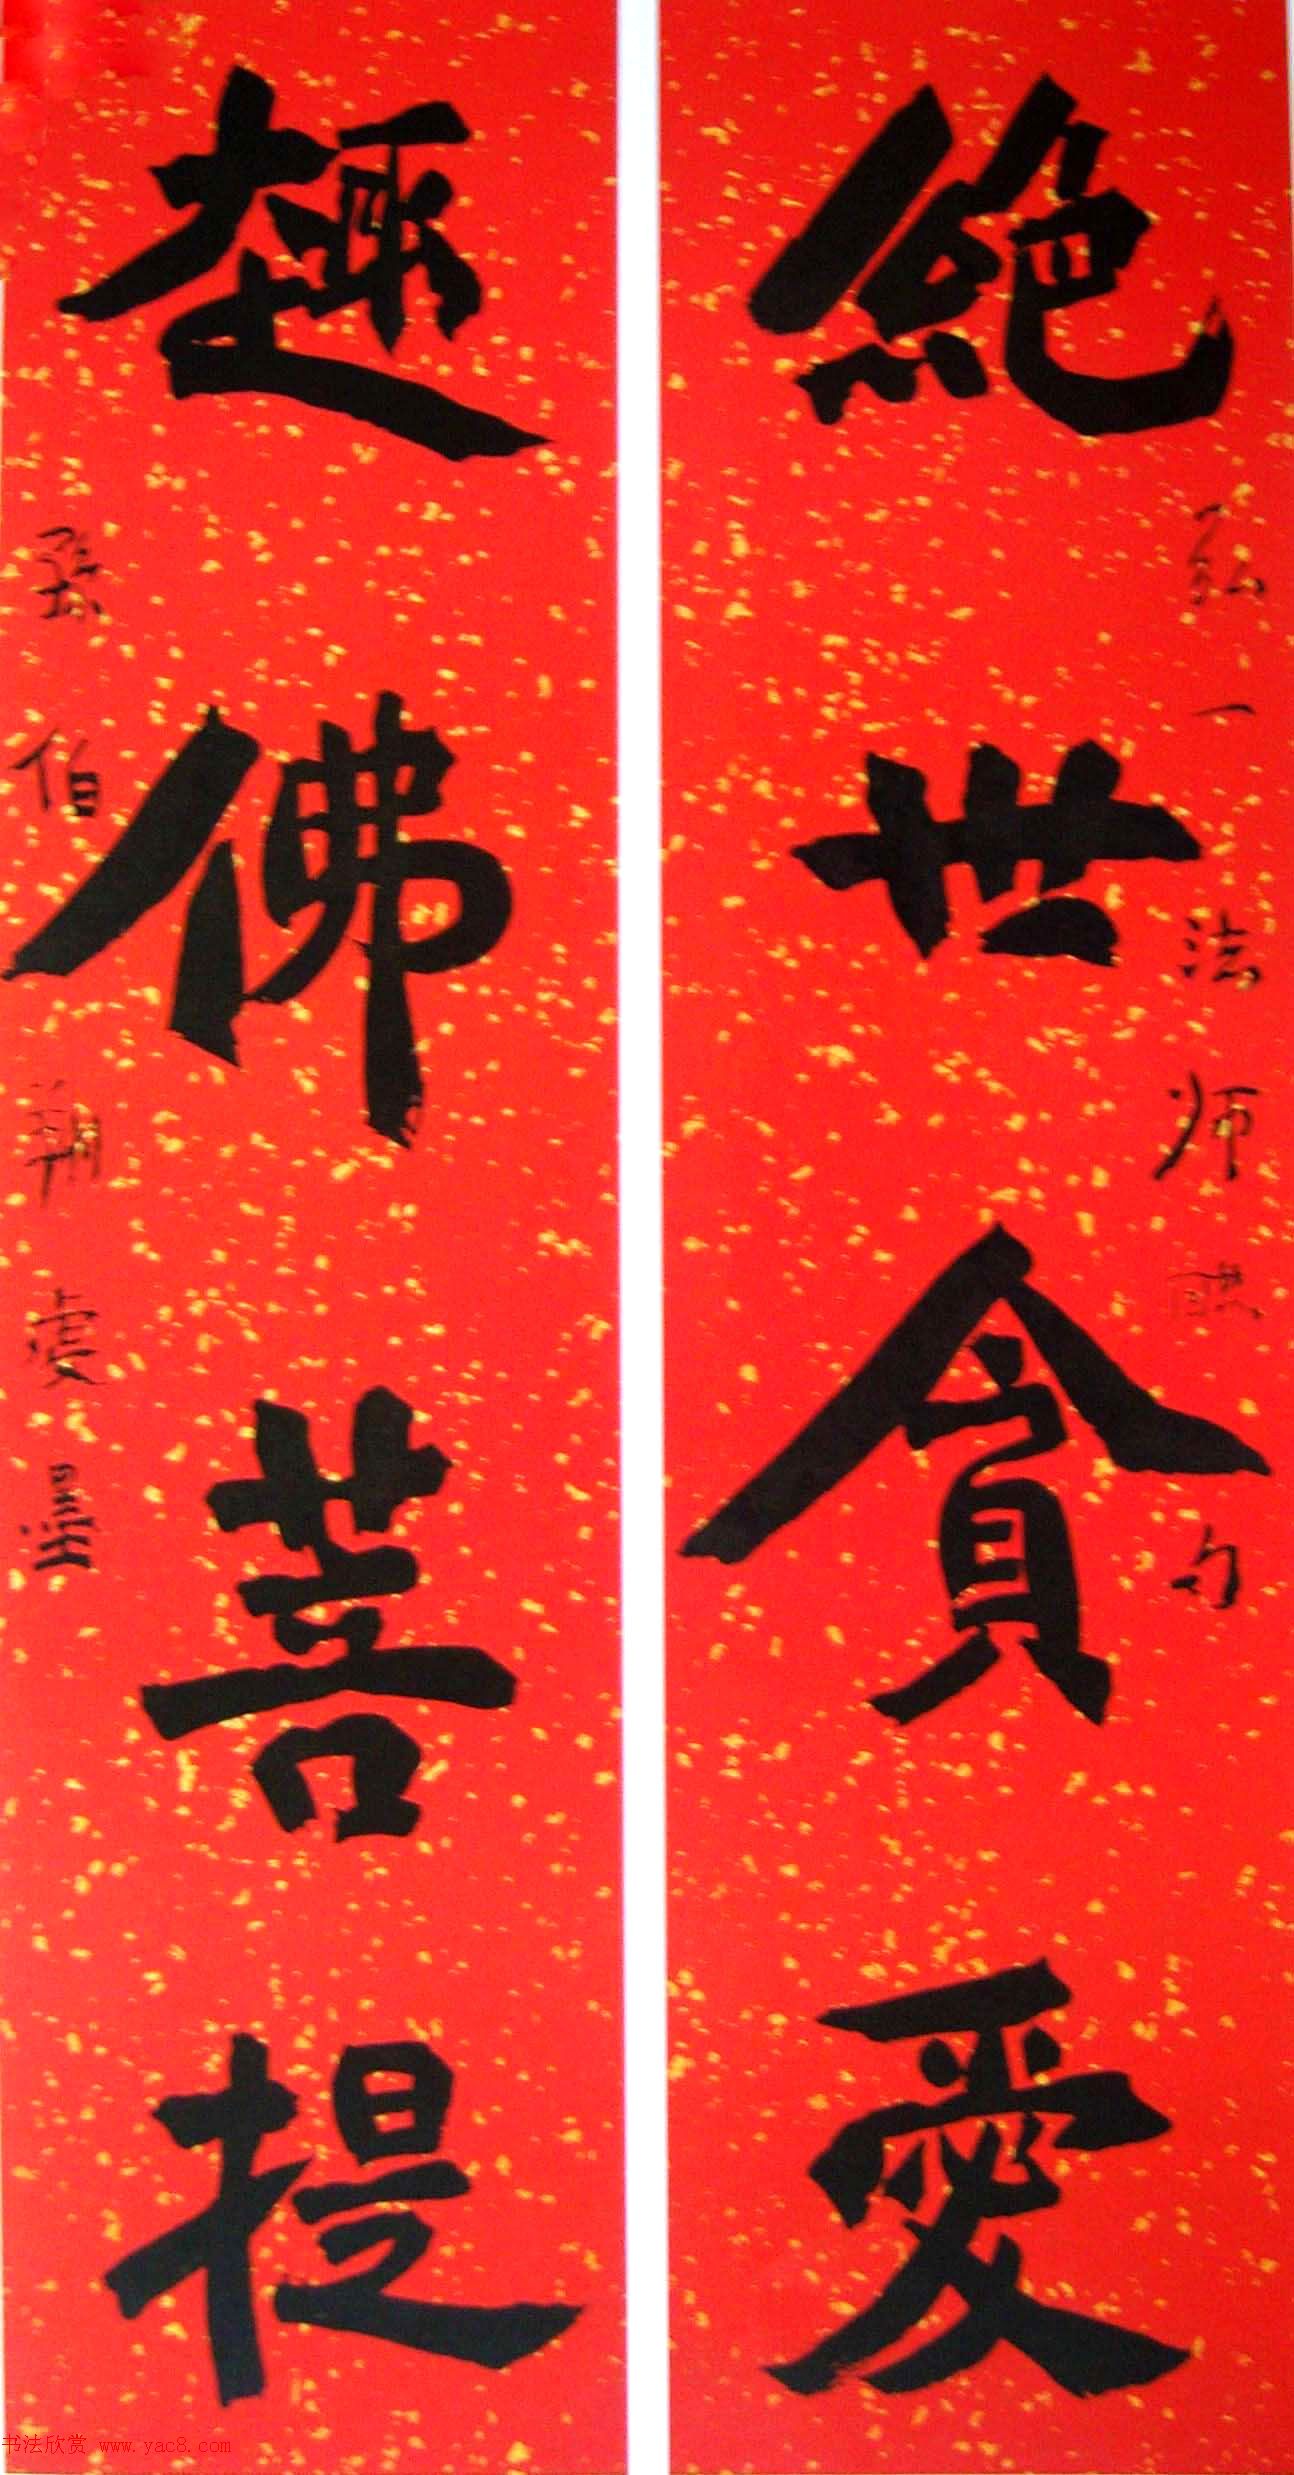 絕世貪愛
弘一法师 句
趣佛菩提
孙伯翔
书法欣赏 www.yac8.com